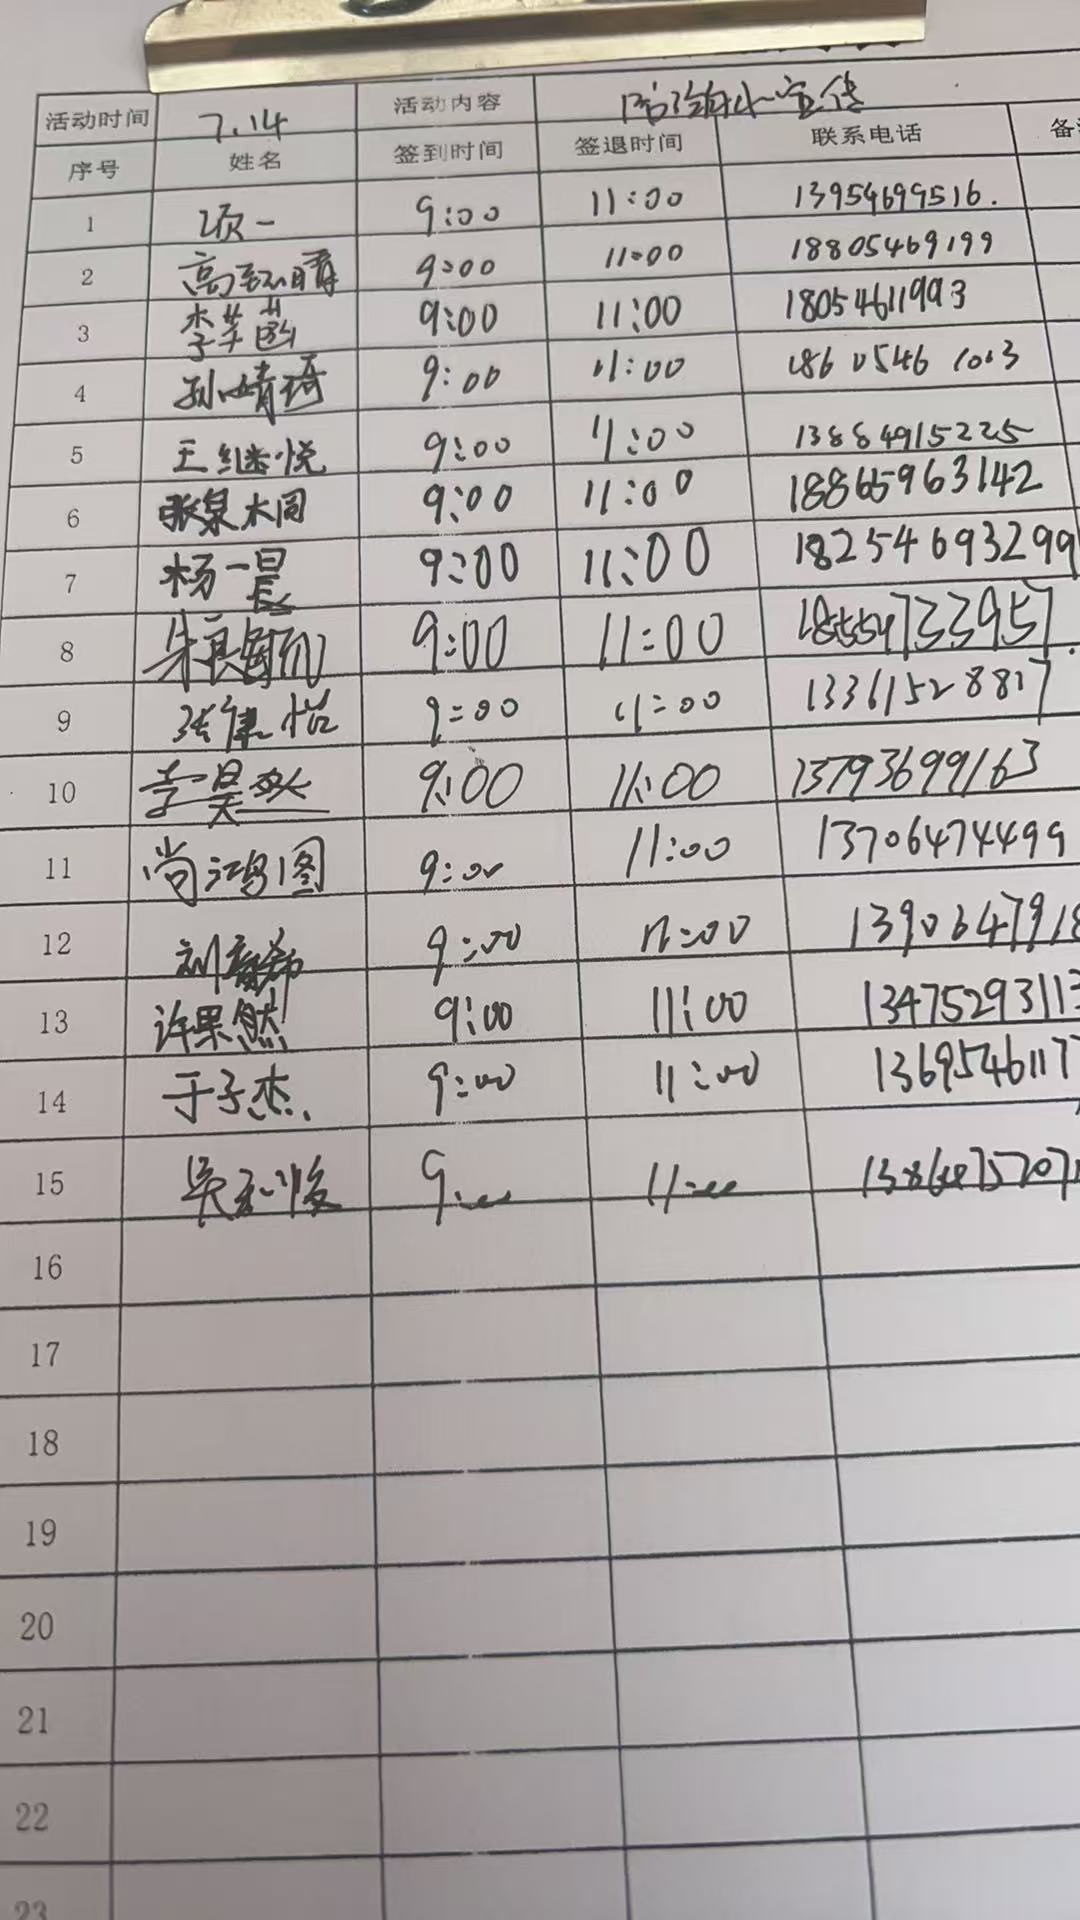 活动时间 7.14 活动内容 防溺水宣传
序号 姓名 签到时间 签退时间 联系电话 备
1 项一 9:00 11:00 13954699516.
2 高 晴 9:00 11:00 18805469199
3 李芊菡 9:00 11:00 18054611993
4 孙婧琦 9:00 11:00 18605461003
5 王继悦 9:00 11:00 13884915225
6 张泉木同 9:00 11:00 18865963142
7 杨一晨 9:00 11:00 18254693299
8 朱良 9:00 11:00 733957
9 张 怡 9:00 11:00 13361528817
10 李昊 9:00 11:00 13793699163
11 尚鸿图 9:00 11:00 13706474499
12 刘 希 9:00 11:00 1390647918
13 许果然 9:00 11:00 13475293113
14 于子杰 9:00 11:00 1369546117
15 吴 9:00 11:00
16
17
18
19
20
21
22
23